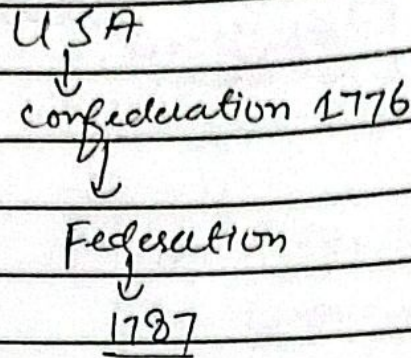 USA
↓
Confederation 1776
↓
Federation
↓
1787